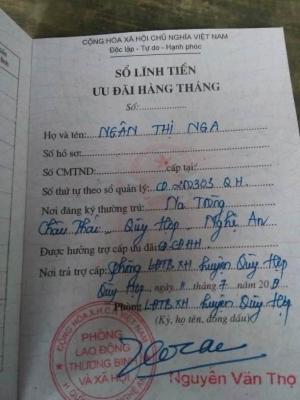 CỘNG HÒA XÃ HỘI CHỦ NGHĨA VIỆT NAM
Độc lập - Tự do - Hạnh phúc
SỔ LĨNH TIỀN
ƯU ĐÃI HÀNG THÁNG
Số:
Họ và tên: NGÂN THỊ NGA
Số hồ sơ:
Số CMTND: cấp tại:
Số thứ tự theo số quản lý: CĐ 200303 Q.H.
Nơi đăng ký thường trú: Na Trỏng
Châu Thái, Qùy Hợp, Nghệ An
Được hưởng trợ cấp ưu đãi:
Nơi trả trợ cấp: phòng LĐTB.XH huyện Qùy Hợp
Qùy Hợp, ngày 11 tháng 7 năm 20
Phòng LĐTB.XH huyện Qùy Hợp
(Ký, họ tên, đóng dấu)
CỘNG HÒA X.H.C.N VIỆT NAM
PHÒNG
LAO ĐỘNG
THƯƠNG BINH
VÀ XÃ HỘI
Nguyễn Văn Thọ